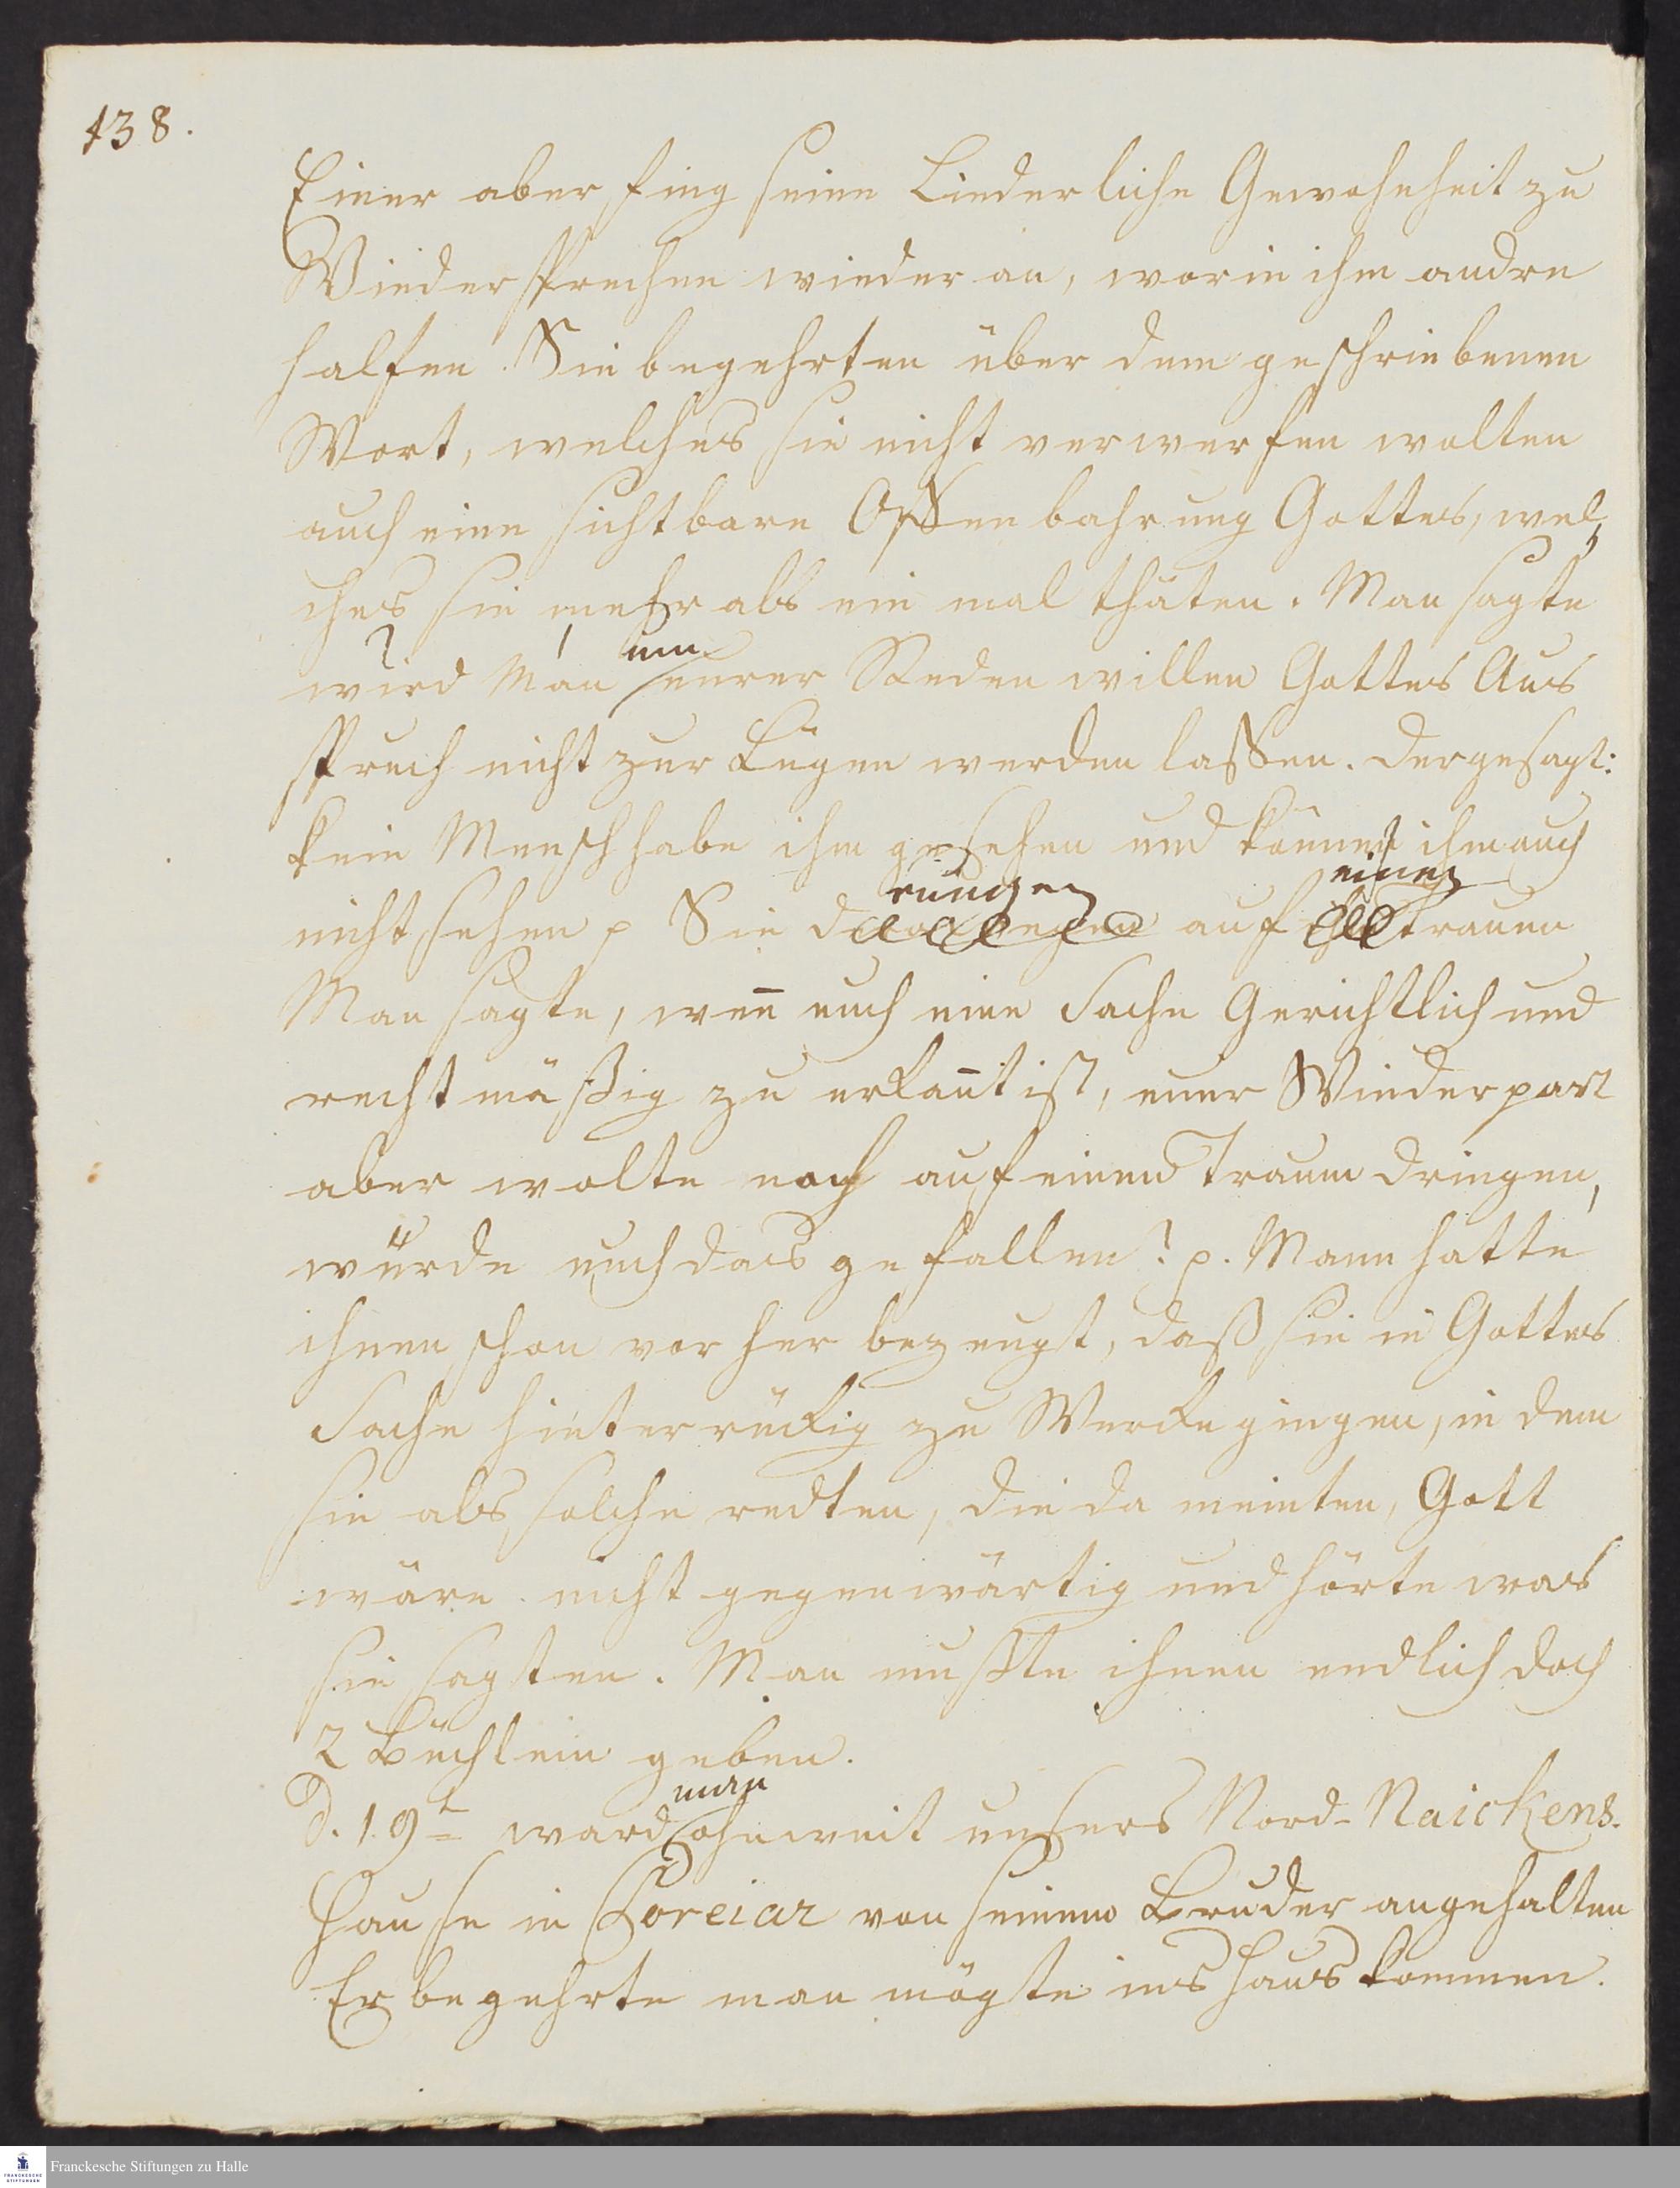 138.
Einer aber fing seine Liederliche Gewohnheit zu
Wiedersprechen wieder an, worin ihm andre
halfen. Sie begehrten über dem geschriebenen
Wort, welches sie nicht verwerfen wolten
auch eine sichtbare Offenbahrung Gottes, wel
ches sie mehr als ein mal thäten. Man sagte
um
wird Man eurer Reden willen Gottes Aus
spruch nicht zur Lügen werden laßen. der gesagt:
kein Mensch habe ihm gesehen und könne ihm auch
rungen einen
nicht sehen p Sie auf trauen
Man sagte, weñ euch eine Sache Gerichtlich und
rechtmäßig zu erkañt ist, euer Wiederpart
aber wolte noch auf einem Traum dringen,
würde euch das gefallen? p. Mann hatte
ihnen schon vor her bezeugt, daß sie in Gottes
Sache hinterrückig zu Wercke gingen, in dem
sie als solche redten, die da meinten, Gott
wäre nicht gegenwärtig und hörte was
sie sagten. Man mußte ihnen endlich doch
2 Büchlein geben.
man
d. 19t ward ohnweit unsers Nord-Naickens
Hause in Coreiar von seinem Bruder angehalten
Er begehrte man mögte ins Haus kommen.
Franckesche Stiftungen zu Halle